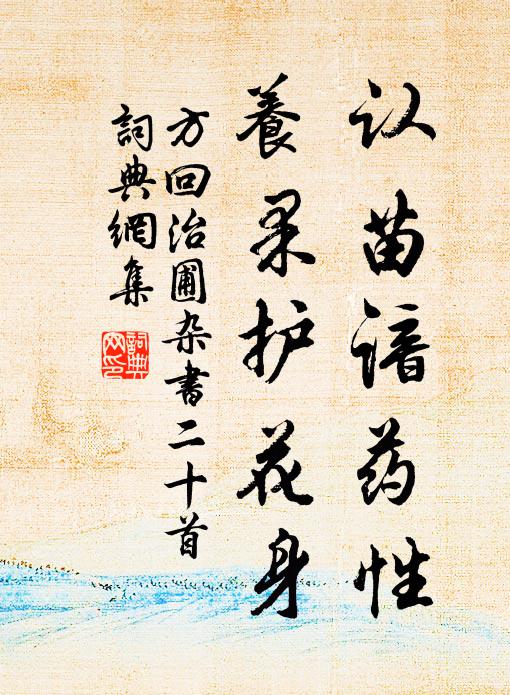 认苗谙药性
養果护花身
方回治圃杂書二十首
詞典網集
詞典网印